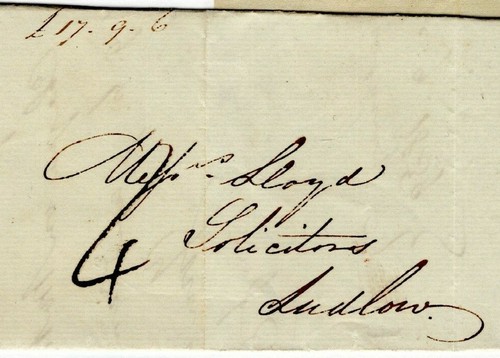 £17-9-6
Messrs. Lloyd
4
Solicitors
Ludlow.